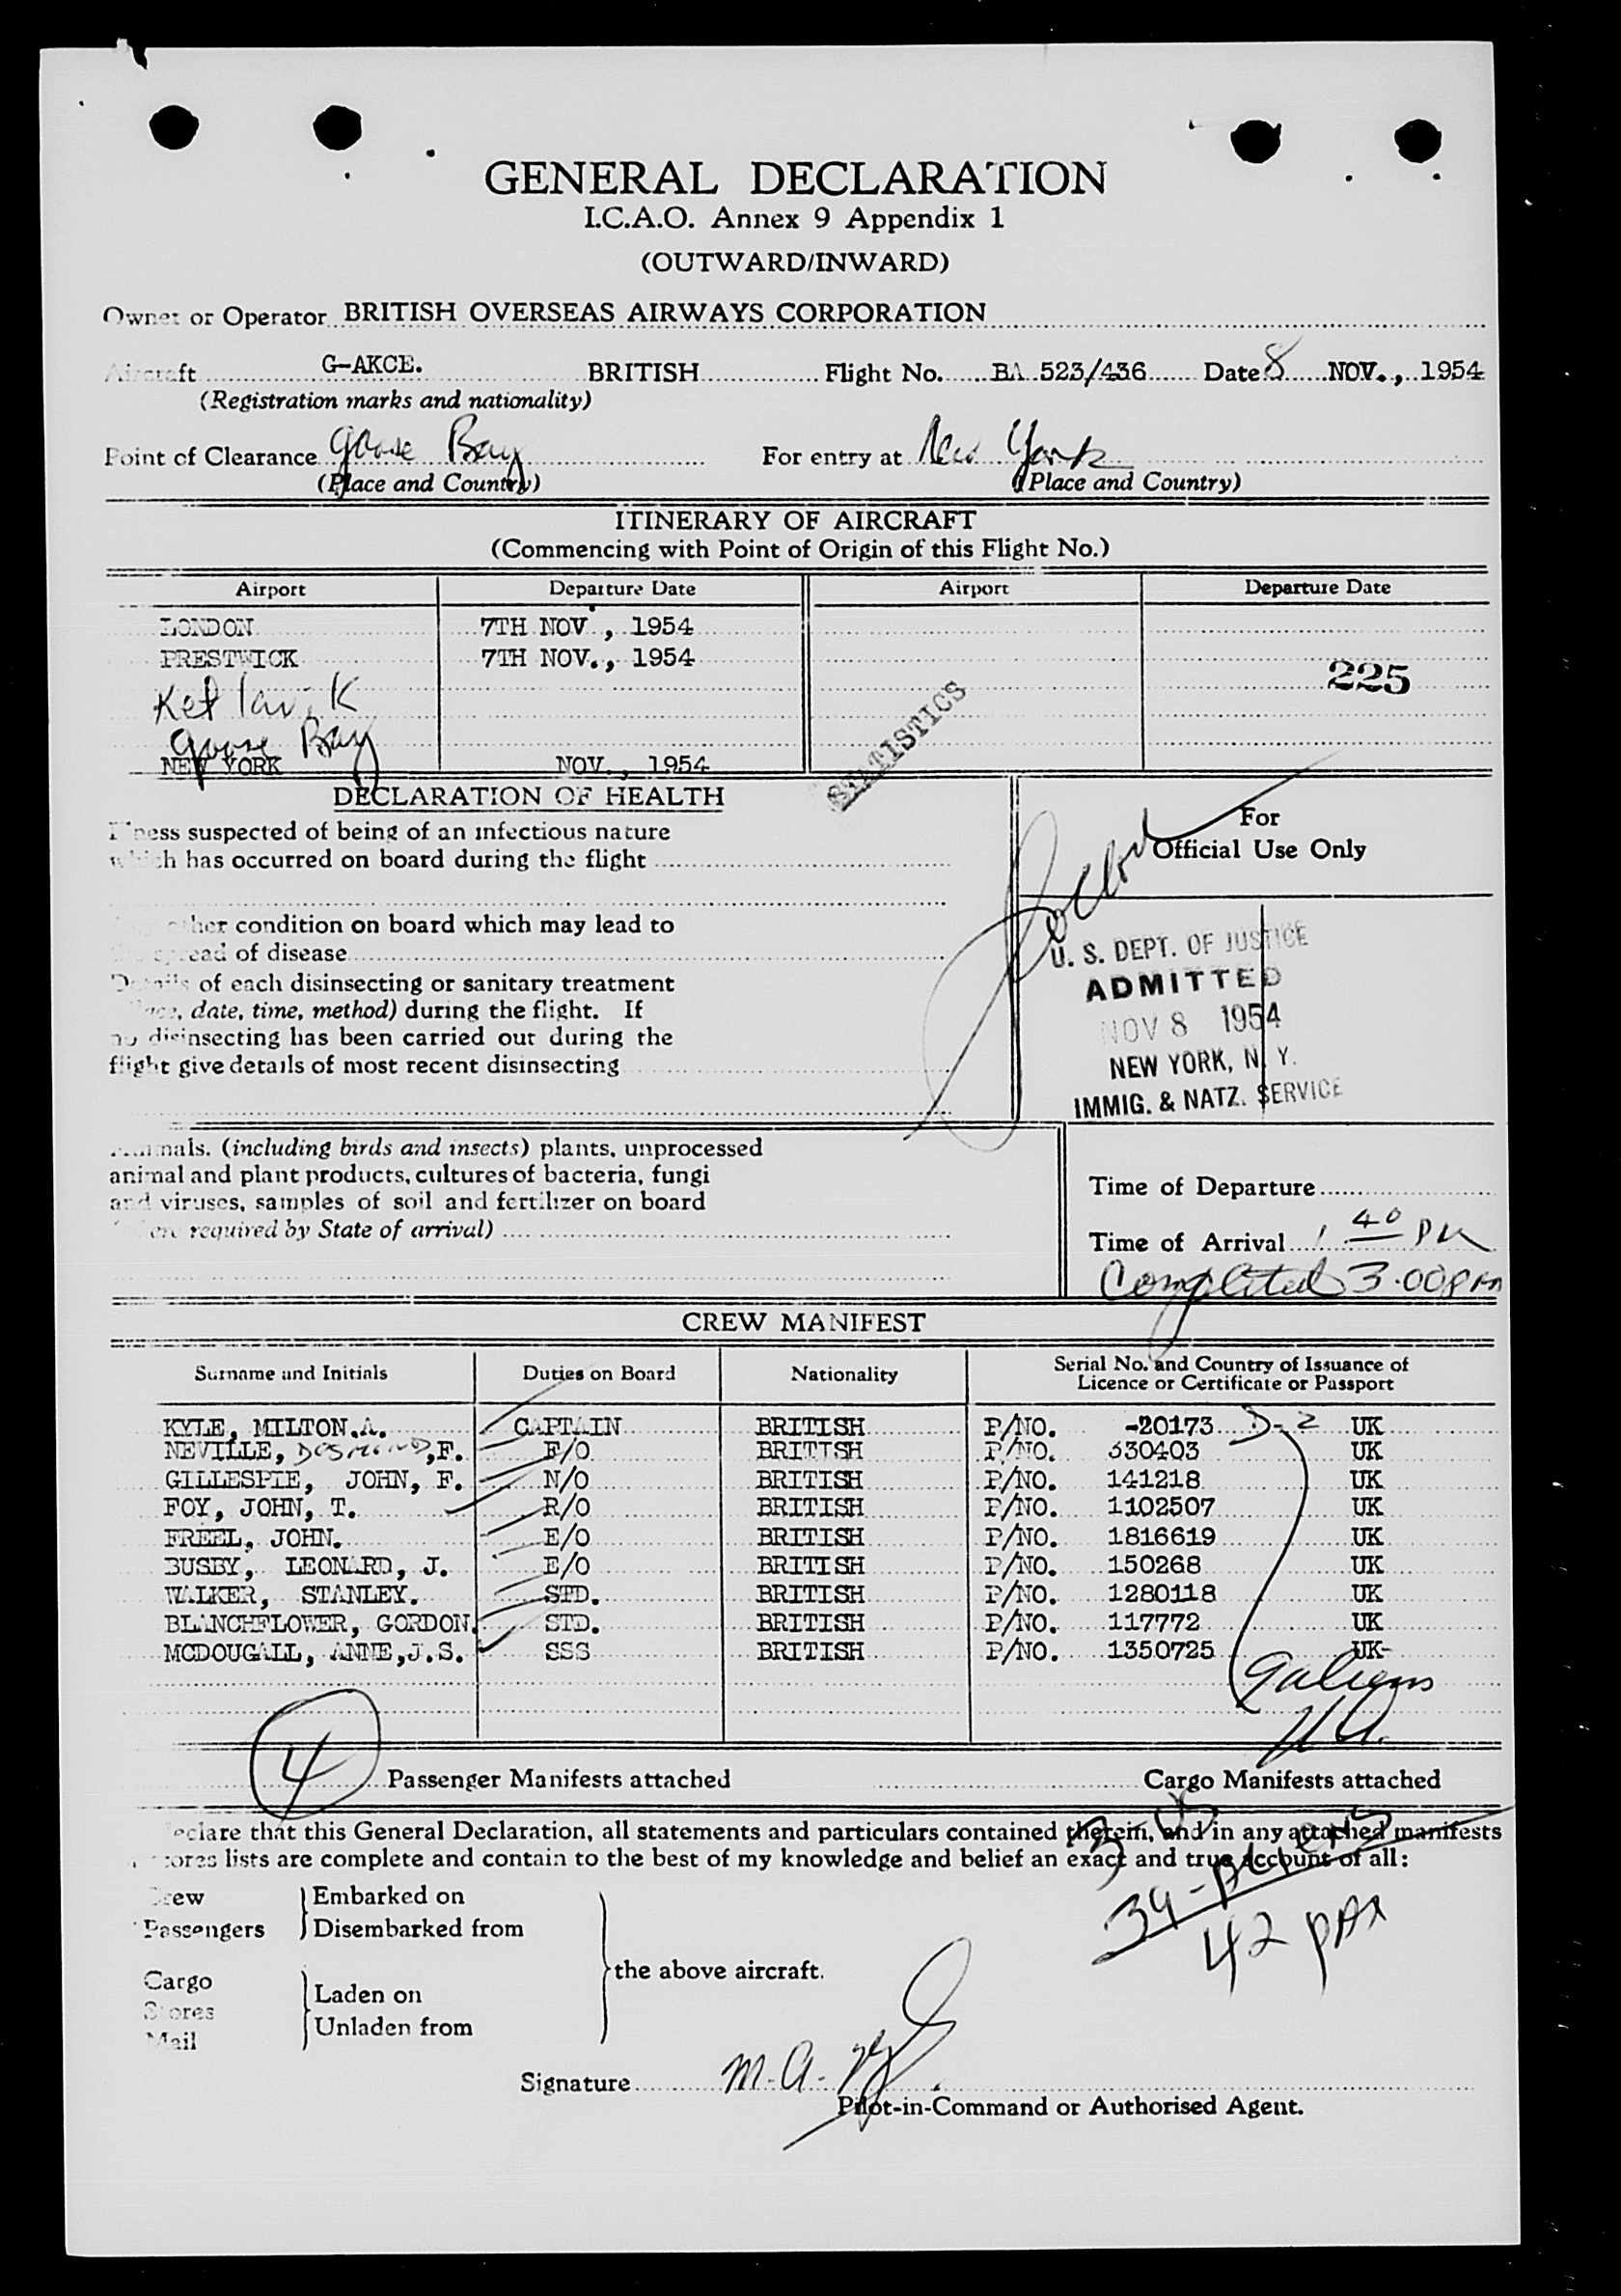 GENERAL DECLARATION
I.C.A.O. Annex 9 Appendix 1
(OUTWARD/INWARD)
Owner or Operator BRITISH OVERSEAS AIRWAYS CORPORATION
Aircraft G-AKCE. BRITISH Flight No. BA 523/436 Date 8 NOV., 1954
(Registration marks and nationality)
Point of Clearance Goose Bay For entry at New York
(Place and Country) (Place and Country)
ITINERARY OF AIRCRAFT
(Commencing with Point of Origin of this Flight No.)
Airport Departure Date Airport Departure Date
LONDON 7TH NOV., 1954
PRESTWICK 7TH NOV., 1954
225
Keflavik
Goose Bay
NEW YORK NOV., 1954
STATISTICS
DECLARATION OF HEALTH
Illness suspected of being of an infectious nature
which has occurred on board during the flight
For
Official Use Only
other condition on board which may lead to
the spread of disease
Details of each disinsecting or sanitary treatment
(place, date, time, method) during the flight. If
no disinsecting has been carried out during the
flight give details of most recent disinsecting
U. S. DEPT. OF JUSTICE
ADMITTED
NOV 8 1954
NEW YORK, N. Y.
IMMIG. & NATZ. SERVICE
Animals. (including birds and insects) plants, unprocessed
animal and plant products, cultures of bacteria, fungi
and viruses, samples of soil and fertilizer on board
(when required by State of arrival)
Time of Departure
Time of Arrival 1 40 PM
Completed 3.00pm
CREW MANIFEST
Surname and Initials Duties on Board Nationality Serial No. and Country of Issuance of
Licence or Certificate or Passport
KYLE, MILTON.A. CAPTAIN BRITISH P/NO. -20173 D-2 UK
NEVILLE, DESMOND,F. F/O BRITISH P/NO. 330403 UK
GILLESPIE, JOHN, F. N/O BRITISH P/NO. 141218 UK
FOY, JOHN, T. R/O BRITISH P/NO. 1102507 UK
FREEL, JOHN. E/O BRITISH P/NO. 1816619 UK
BUSBY, LEONARD, J. E/O BRITISH P/NO. 150268 UK
WALKER, STANLEY. STD. BRITISH P/NO. 1280118 UK
BLANCHFLOWER, GORDON. STD. BRITISH P/NO. 117772 UK
MCDOUGALL, ANNE,J.S. SSS BRITISH P/NO. 1350725 UK
9 aliens
4 Passenger Manifests attached Cargo Manifests attached
declare that this General Declaration, all statements and particulars contained therein, and in any attached manifests
stores lists are complete and contain to the best of my knowledge and belief an exact and true account of all:
Crew Embarked on
Passengers Disembarked from
the above aircraft.
Cargo Laden on
Stores
Mail Unladen from
39-aliens
42 pax
Signature M.A.
Pilot-in-Command or Authorised Agent.